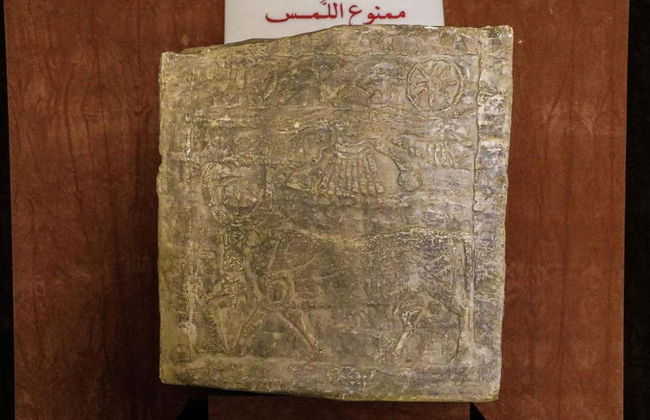 ممنوع اللَّمـس